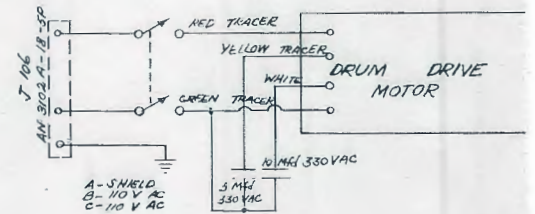 J 106
AN 3102 A-18-5P
RED TRACER
YELLOW TRACER
WHITE
GREEN TRACER
DRUM DRIVE
MOTOR
10 Mfd 330 VAC
3 Mfd
330 VAC
A - SHIELD
B - 110 V AC
C - 110 V AC